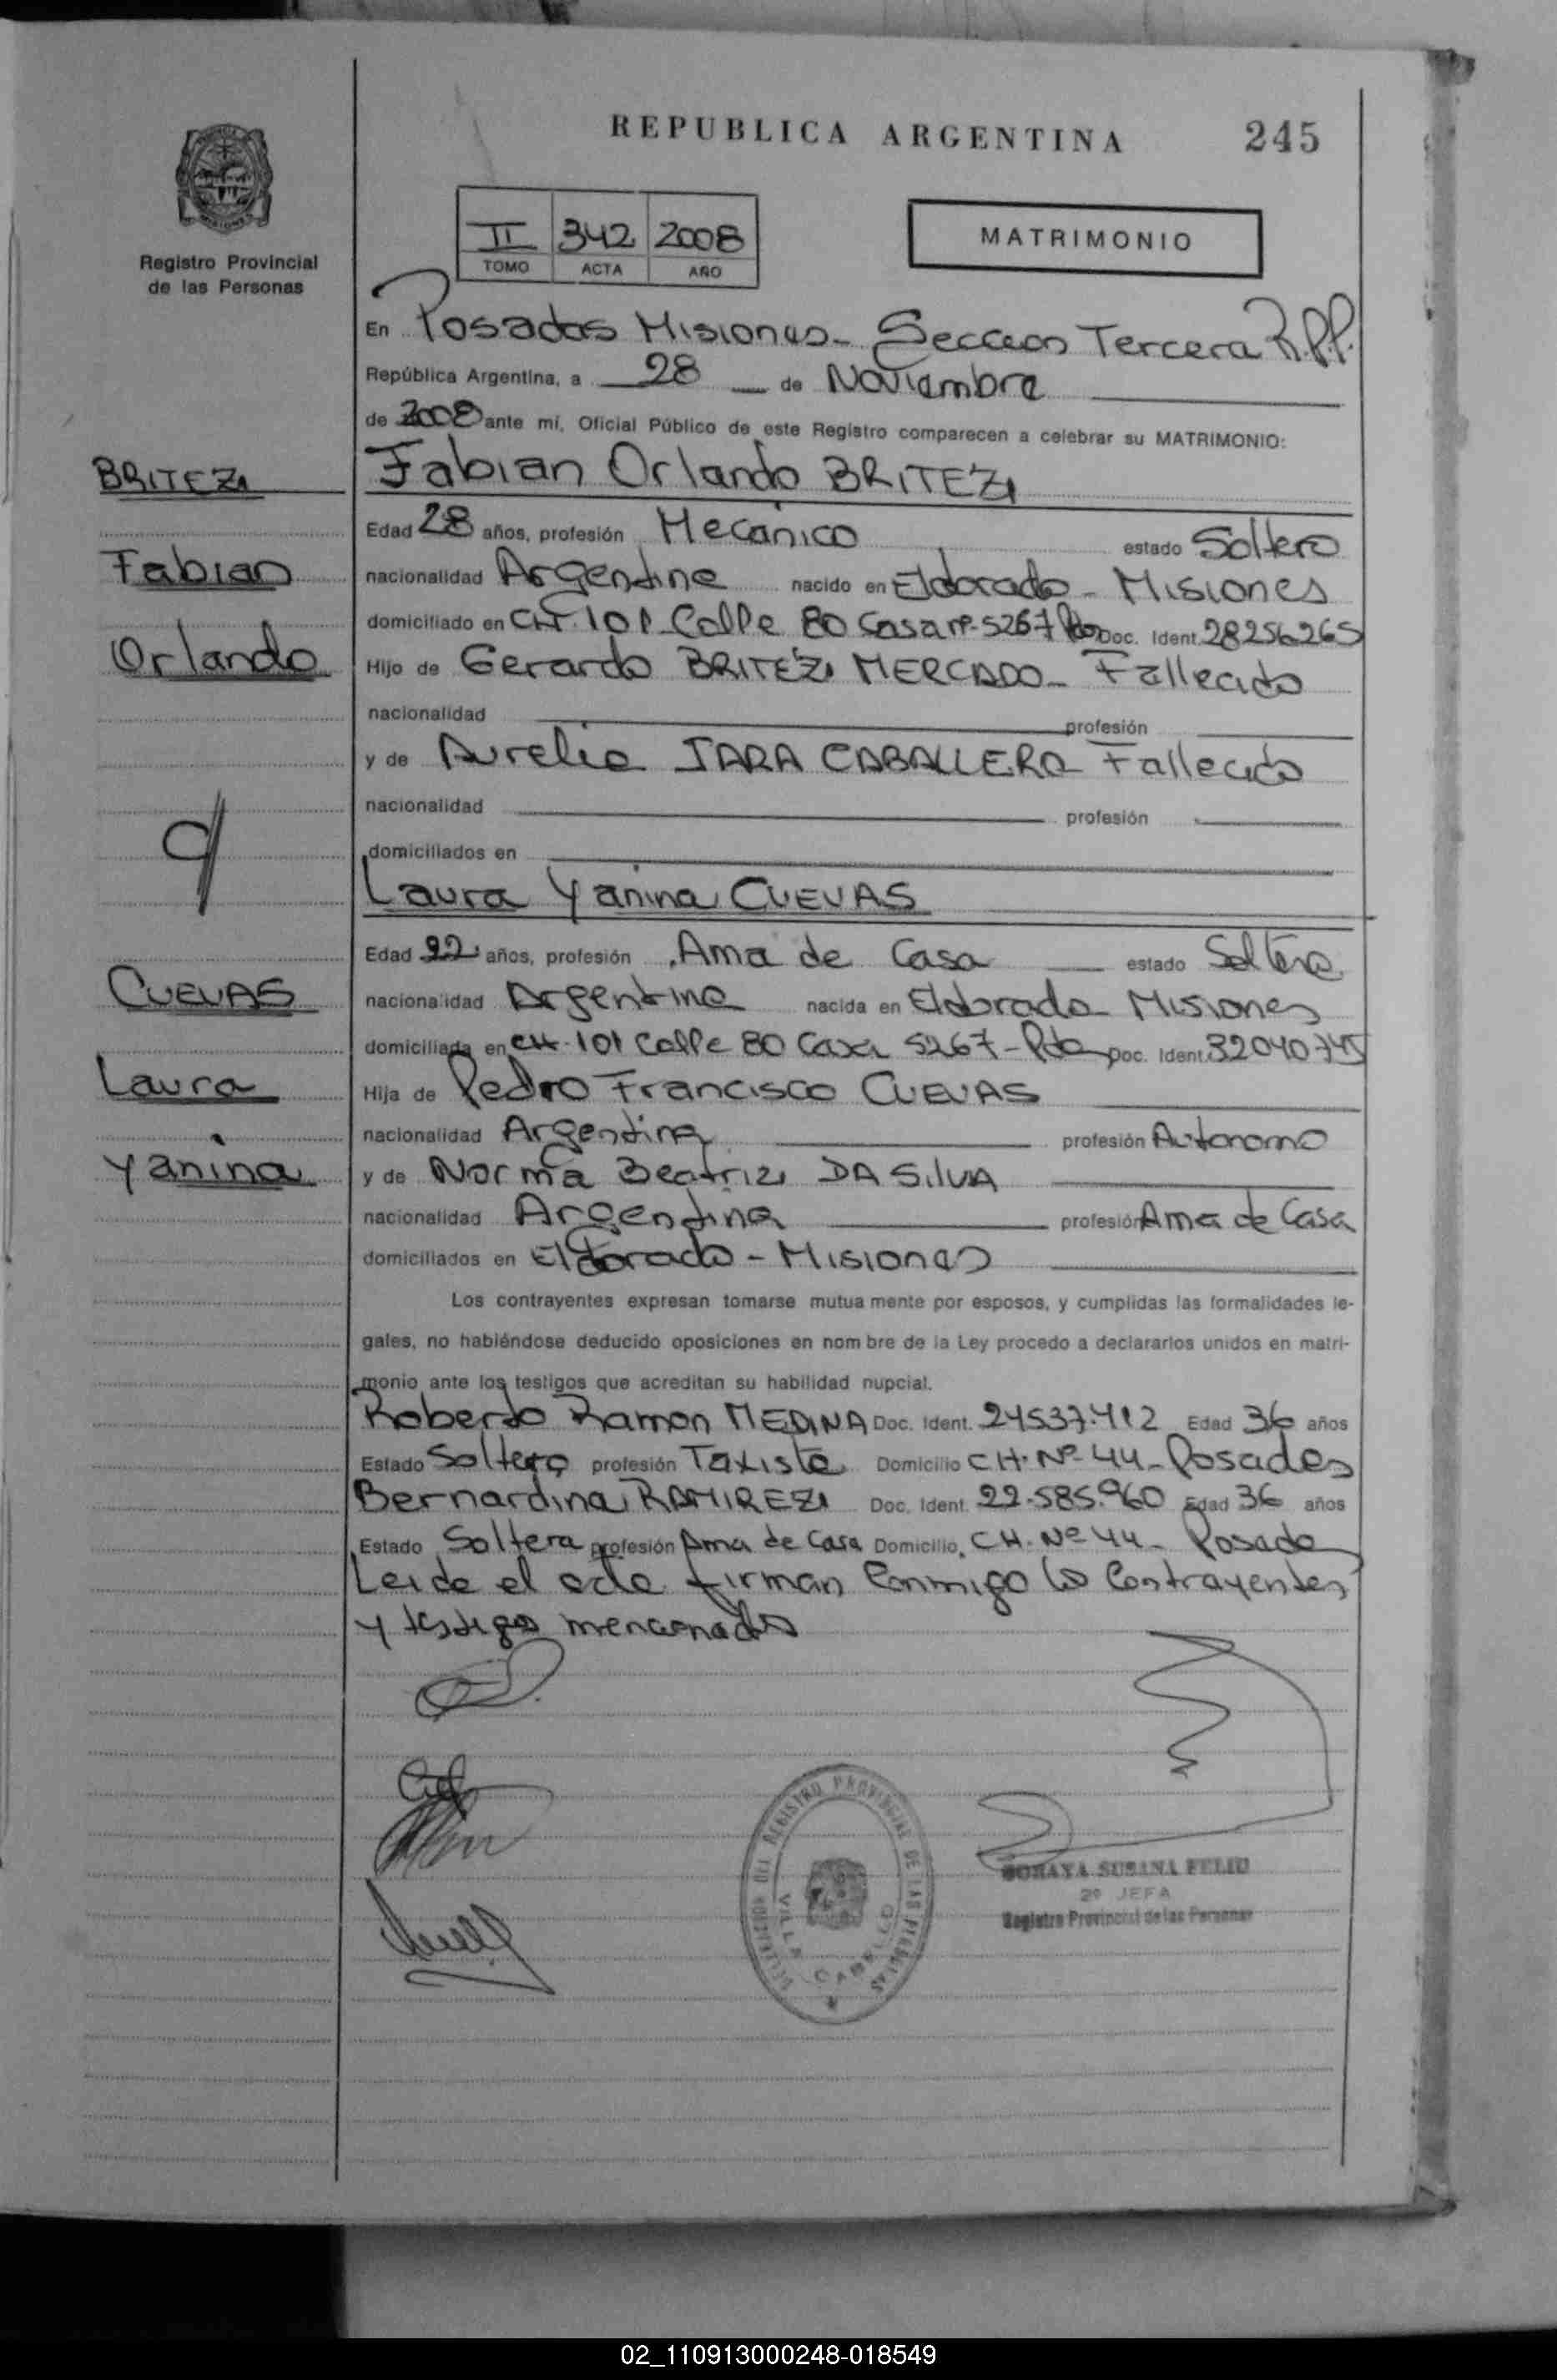 REPUBLICA ARGENTINA 245
Registro Provincial
de las Personas
II 342 2008
TOMO ACTA AÑO
MATRIMONIO
En Posadas Misiones- Seccion Tercera R.P.P.
República Argentina, a 28 de Noviembre
de 2008 ante mí, Oficial Público de este Registro comparecen a celebrar su MATRIMONIO:
BRITEZ
Fabian Orlando BRITEZ
Edad 28 años, profesión Mecánico estado Soltero
Fabian
nacionalidad Argentina nacido en Eldorado - Misiones
domiciliado en CH. 101 Calle 80 Casa nº 5267 Doc. Ident. 28256265
Orlando
Hijo de Gerardo BRITEZ MERCADO- Fallecido
nacionalidad profesión
y de Aurelia JARA CABALLERO Fallecido
nacionalidad profesión
domiciliados en
Laura Yanina CUEVAS
Edad 22 años, profesión Ama de Casa estado Soltera
CUEVAS
nacionalidad Argentina nacida en Eldorado Misiones
domiciliada en CH. 101 Calle 80 Casa 5267 - Doc. Ident. 32040745
Laura
Hija de Pedro Francisco CUEVAS
nacionalidad Argentina profesión Autonomo
Yanina
y de Norma Beatriz DA SILVA
nacionalidad Argentina profesión Ama de Casa
domiciliados en Eldorado - Misiones
Los contrayentes expresan tomarse mutua mente por esposos, y cumplidas las formalidades le-
gales, no habiéndose deducido oposiciones en nom bre de la Ley procedo a declararlos unidos en matri-
monio ante los testigos que acreditan su habilidad nupcial.
Roberto Ramon MEDINA Doc. Ident. 24537.412 Edad 36 años
Estado Soltero profesión Taxista Domicilio CH. Nº 44- Posadas
Bernardina RAMIREZ Doc. Ident. 22.585.960 Edad 36 años
Estado Soltera profesión Ama de Casa Domicilio, CH. Nº 44- Posadas
Leida el acta firman Conmigo los Contrayentes
y testigos mencionados
DELEGACION DEL REGISTRO PROVINCIAL DE LAS PERSONAS
VILLA CABELLO
SORAYA SUSANA FELIU
2º JEFA
Registro Provincial de las Personas
02_110913000248-018549